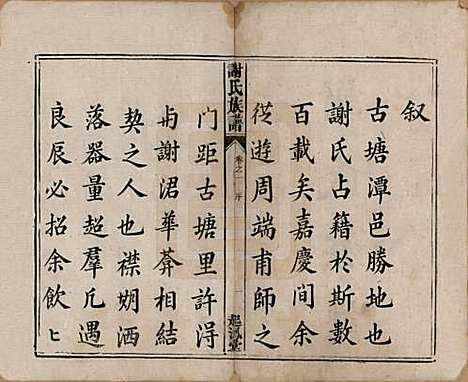 叙
古塘潭邑勝地也
謝氏占籍於斯數
百載矣嘉慶間余
從遊周端甫師之
謝氏族譜
卷之一
序
一
起鳳堂
門距古塘里許得
與謝涒華葊相結
契之人也襟期洒
落器量超羣凡遇
良辰必招余飲上